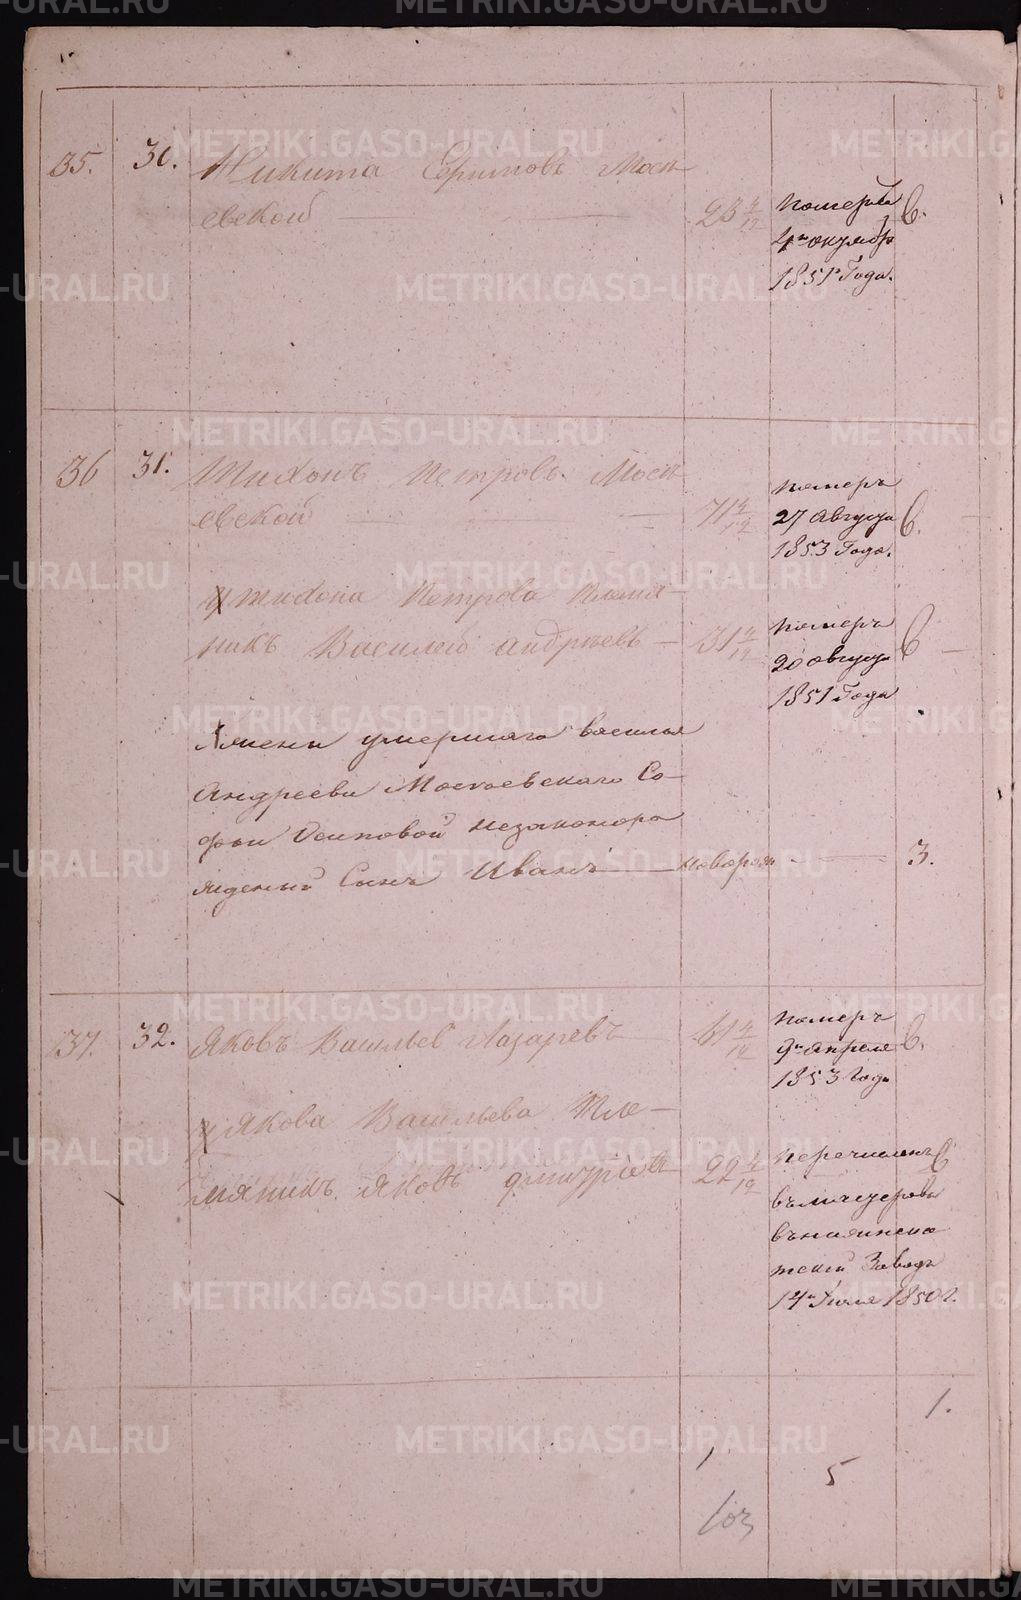 35. 30. Никита Сергѣтовъ Моск
евской 23 4/12 Померъ 6.
4го октябр
1851 Года.
36 31. Тихонъ Петровъ Моск
евской 71 4/12 померъ 6.
27 августа
1853 Года.
у тихона Петрова племя-
никъ Василей андрѣевъ 31 4/12 померъ 6
20 августа
1851 Года
Жжены умершаго василья
Андреева Москоевскаго Со-
фьи Осиповой незаконоро
жденый Сынъ Иванъ новорож 3.
37. 32. Яковъ Васильев Лазаревъ 41 4/12 померъ 6.
9го апреля
1853 Года
у якова Васильева Пле-
мяникъ яковъ дмитріевъ 22 4/12 перечисленъ 6
въ мастеровы
Заводъ
14го Июля 1850 г.
1.
1 5
103
METRIKI.GASO-URAL.RU